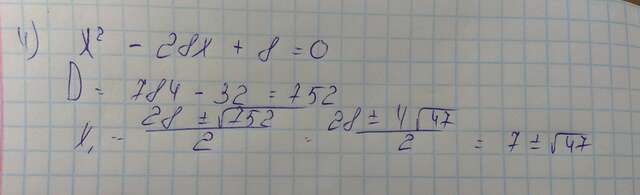 4) x² - 28x + 8 = 0
D = 784 - 32 = 752
x₁ = (28 ± √752)/2 = (28 ± 4√47)/2 = 7 ± √47